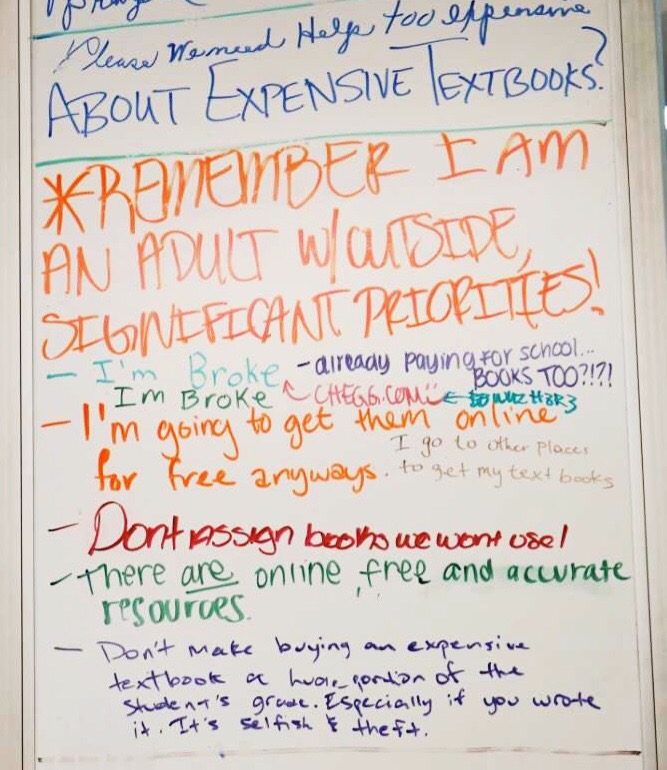 Please We need Help too expensive
ABOUT EXPENSIVE TEXTBOOKS?
*REMEMBER I AM
AN ADULT W/OUTSIDE,
SIGNIFICANT PRIORITIES!
- I'm Broke - already paying for school...
BOOKS TOO?!?!
Im Broke CHEGG.COM
- I'm going to get them online
for free anyways.
I go to other places
to get my text books
- Dont Assign books we wont use!
- There are online, free and accurate
resources.
- Don't make buying an expensive
textbook a huge portion of the
student's grade. Especially if you wrote
it. It's selfish & theft.